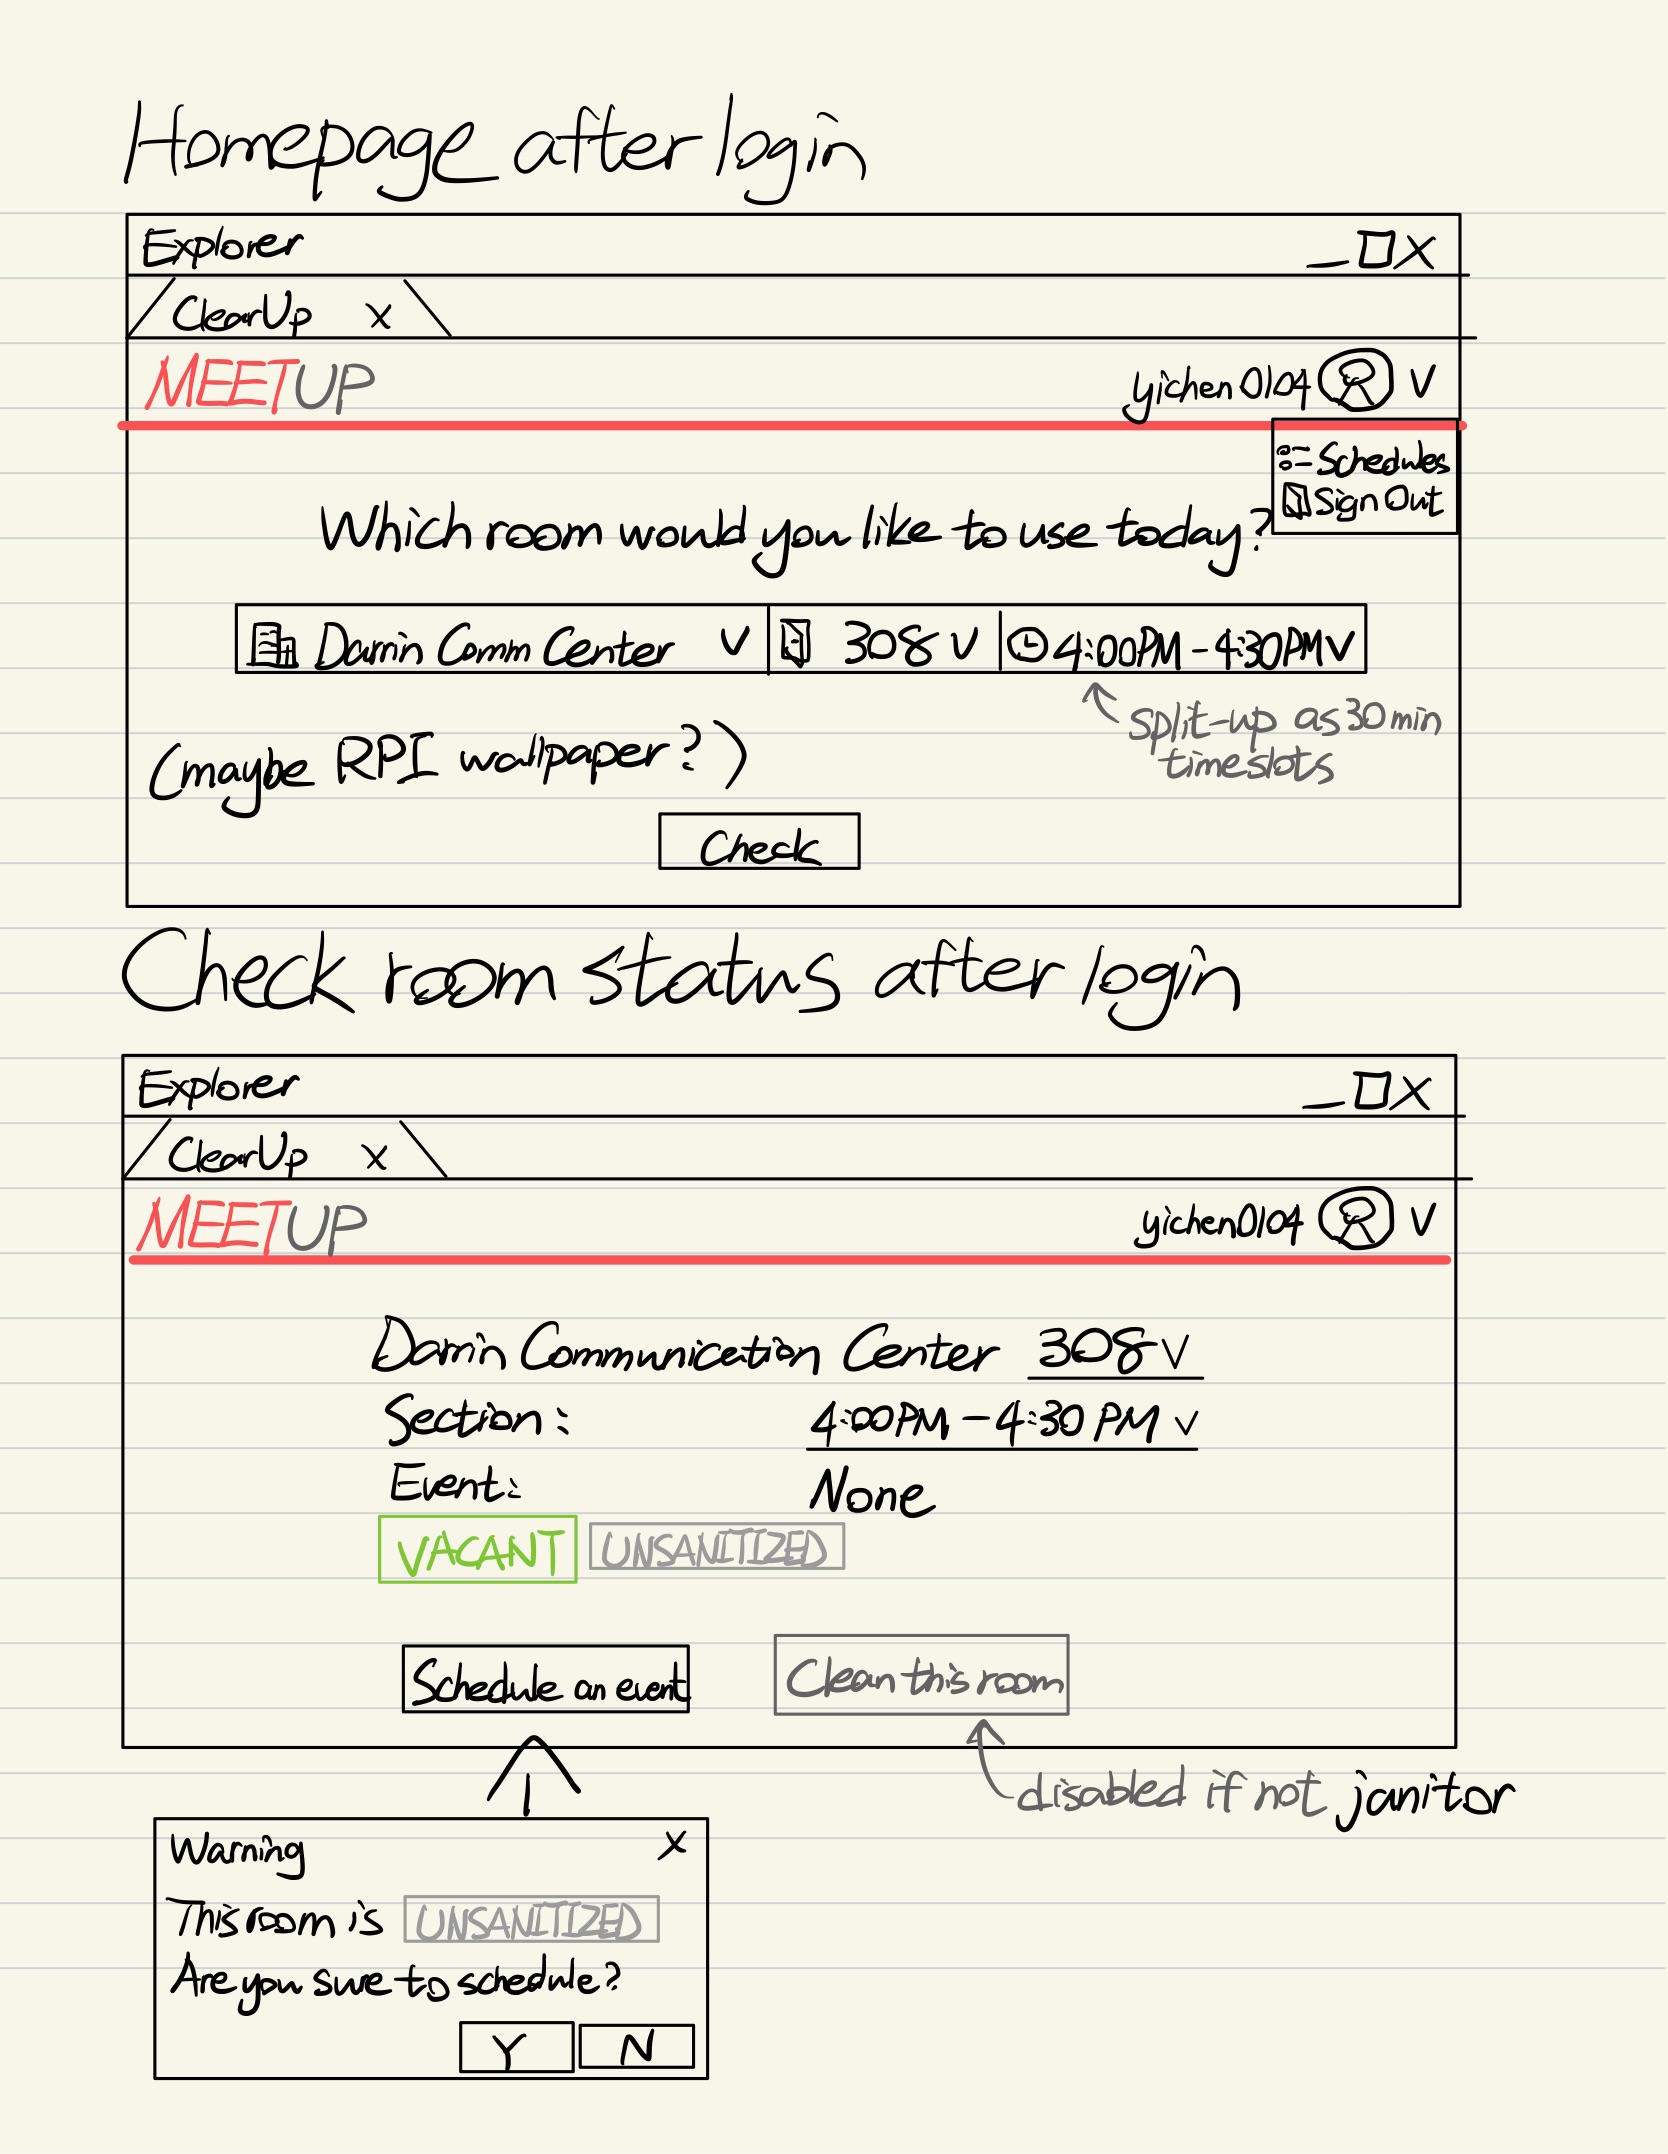 Homepage after login
Explorer
ClearUp x
MEETUP yichen0104
Schedules
Sign Out
Which room would you like to use today?
Darrin Comm Center 308 4:00PM-4:30PM
split-up as 30 min
timeslots
(maybe RPI wallpaper?)
Check
Check room status after login
Explorer
ClearUp x
MEETUP yichen0104
Darrin Communication Center 308
Section: 4:00PM-4:30 PM
Event: None
VACANT UNSANITIZED
Schedule an event Clean this room
disabled if not janitor
Warning x
This room is UNSANITIZED
Are you sure to schedule?
Y N